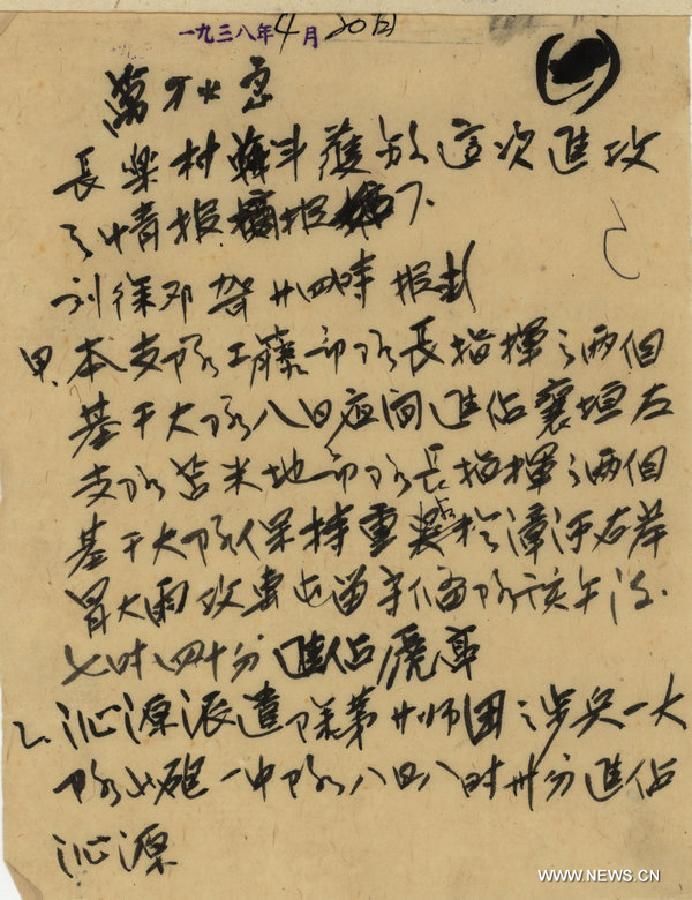 一九三八年4月20日
萬万火急
(一)
長樂村戰斗獲敌這次進攻
之情报摘报如下.
刘徐邓 卄四時 报封
甲.本支隊工藤部隊長指揮之两個
基干大隊八日夜间進佔襄垣左
支隊苫米地部隊長指揮之两個
基干大隊保持重點於漳河右岸
冒大雨攻擊屯留 隊 午後.
七时四十分進佔虒亭
乙.沁源派遣隊第卄师团之步兵一大
隊山砲一中隊八日八时卅分進佔
沁源
WWW.NEWS.CN